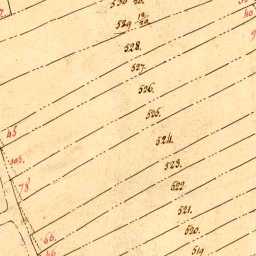 530
529
528.
527.
526.
525.
524.
523.
522
521.
520.
519
65
78
66